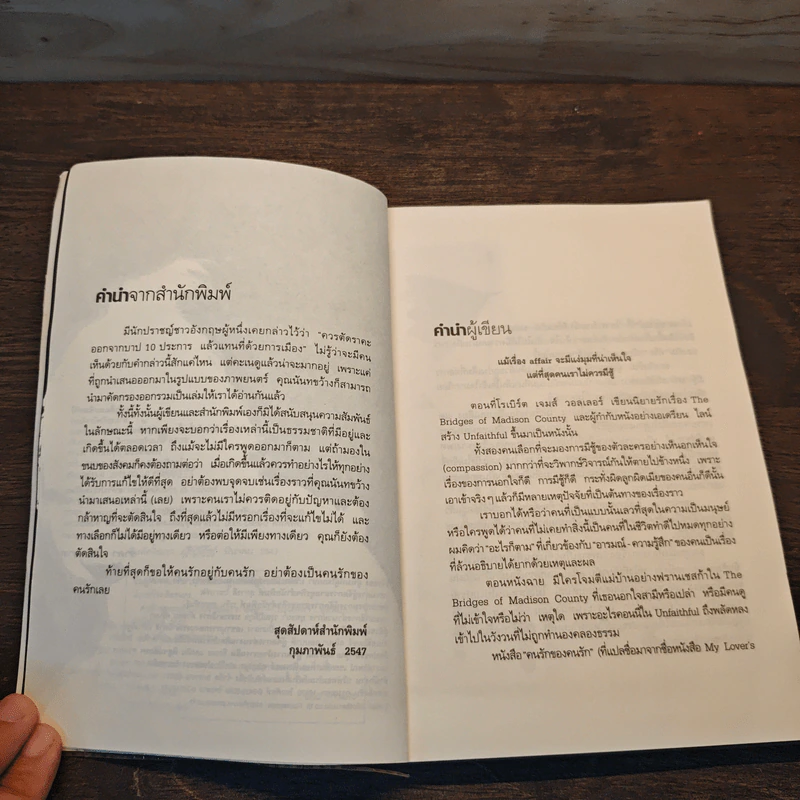 คำนำจากสำนักพิมพ์
มีนักปราชญ์ชาวอังกฤษผู้หนึ่งเคยกล่าวไว้ว่า "ควรตัดราคะ
ออกจากบาป 10 ประการ แล้วแทนที่ด้วยการเมือง" ไม่รู้ว่าจะมีคน
เห็นด้วยกับคำกล่าวนี้สักแค่ไหน แต่คะเนดูแล้วน่าจะมากอยู่ เพราะแค่
ที่ถูกนำเสนอออกมาในรูปแบบของภาพยนตร์ คุณนันทขว้างก็สามารถ
นำมาคัดกรองออกรวมเป็นเล่มให้เราได้อ่านกันแล้ว
ทั้งนี้ทั้งนั้นผู้เขียนและสำนักพิมพ์เองก็มิได้สนับสนุนความสัมพันธ์
ในลักษณะนี้ หากเพียงจะบอกว่าเรื่องเหล่านี้เป็นธรรมชาติที่มีอยู่และ
เกิดขึ้นได้ตลอดเวลา ถึงแม้จะไม่มีใครพูดออกมาก็ตาม แต่ถ้ามองใน
ขนบของสังคมก็คงต้องถามต่อว่า เมื่อเกิดขึ้นแล้วควรทำอย่างไรให้ทุกอย่าง
ได้รับการแก้ไขให้ดีที่สุด อย่าต้องพบจุดจบเช่นเรื่องราวที่คุณนันทขว้าง
นำมาเสนอเหล่านี้ (เลย) เพราะคนเราไม่ควรติดอยู่กับปัญหาและต้อง
กล้าหาญที่จะตัดสินใจ ถึงที่สุดแล้วไม่มีหรอกเรื่องที่จะแก้ไขไม่ได้ และ
ทางเลือกก็ไม่ได้มีอยู่ทางเดียว หรือต่อให้มีเพียงทางเดียว คุณก็ยังต้อง
ตัดสินใจ
ท้ายที่สุดก็ขอให้คนรักอยู่กับคนรัก อย่าต้องเป็นคนรักของ
คนรักเลย
สุดสัปดาห์สำนักพิมพ์
กุมภาพันธ์ 2547
คำนำผู้เขียน
แม้เรื่อง affair จะมีแง่มุมที่น่าเห็นใจ
แต่ที่สุดคนเราไม่ควรมีชู้
ตอนที่โรเบิร์ต เจมส์ วอลเลอร์ เขียนนิยายรักเรื่อง The
Bridges of Madison County และผู้กำกับหนังอย่างเอเดรียน ไลน์
สร้าง Unfaithful ขึ้นมาเป็นหนังนั้น
ทั้งสองคนเลือกที่จะมองการมีชู้ของตัวละครอย่างเห็นอกเห็นใจ
(compassion) มากกว่าที่จะวิพากษ์วิจารณ์กันให้ตายไปข้างหนึ่ง เพราะ
เรื่องของการนอกใจก็ดี การมีชู้ก็ดี กระทั่งผิดลูกผิดเมียของคนอื่นก็ดีนั้น
เอาเข้าจริงๆ แล้วก็มีหลายเหตุปัจจัยที่เป็นต้นทางของเรื่องราว
เราบอกได้หรือว่าคนที่เป็นแบบนั้นเลวที่สุดในความเป็นมนุษย์
หรือใครพูดได้ว่าคนที่ไม่เคยทำสิ่งนี้เป็นคนที่ในชีวิตทำดีไปหมดทุกอย่าง
ผมคิดว่า "อะไรก็ตาม" ที่เกี่ยวข้องกับ "อารมณ์ - ความรู้สึก" ของคนเป็นเรื่อง
ที่ล้วนอธิบายได้ยากด้วยเหตุและผล
ตอนหนังฉาย มีใครโจมตีแม่บ้านอย่างฟรานเชสก้าใน The
Bridges of Madison County ที่เธอนอกใจสามีหรือเปล่า หรือมีคนดู
ที่ไม่เข้าใจหรือไม่ว่า เหตุใด เพราะอะไรคอนนี่ใน Unfaithful ถึงพลัดหลง
เข้าไปในวังวนที่ไม่ถูกทำนองคลองธรรม
หนังสือ "คนรักของคนรัก" (ที่แปลชื่อมาจากชื่อหนังสือ My Lover's